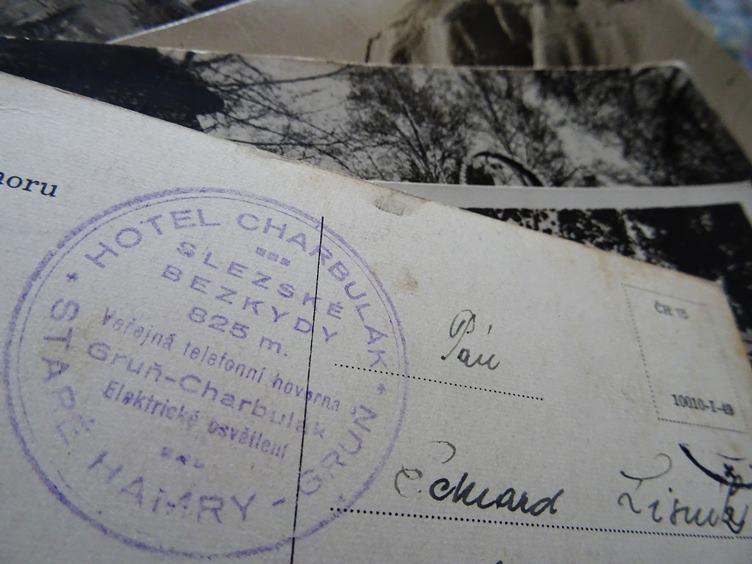 horu
HOTEL CHARBULÁK
SLEZSKÉ
BEZKYDY
825 m.
Veřejná telefonní hovorna
Gruň-Charbulák
Elektrické osvětlení
STARÉ HAMRY - GRUŇ
Pán
Eduard
ČH 15
10010-I-49